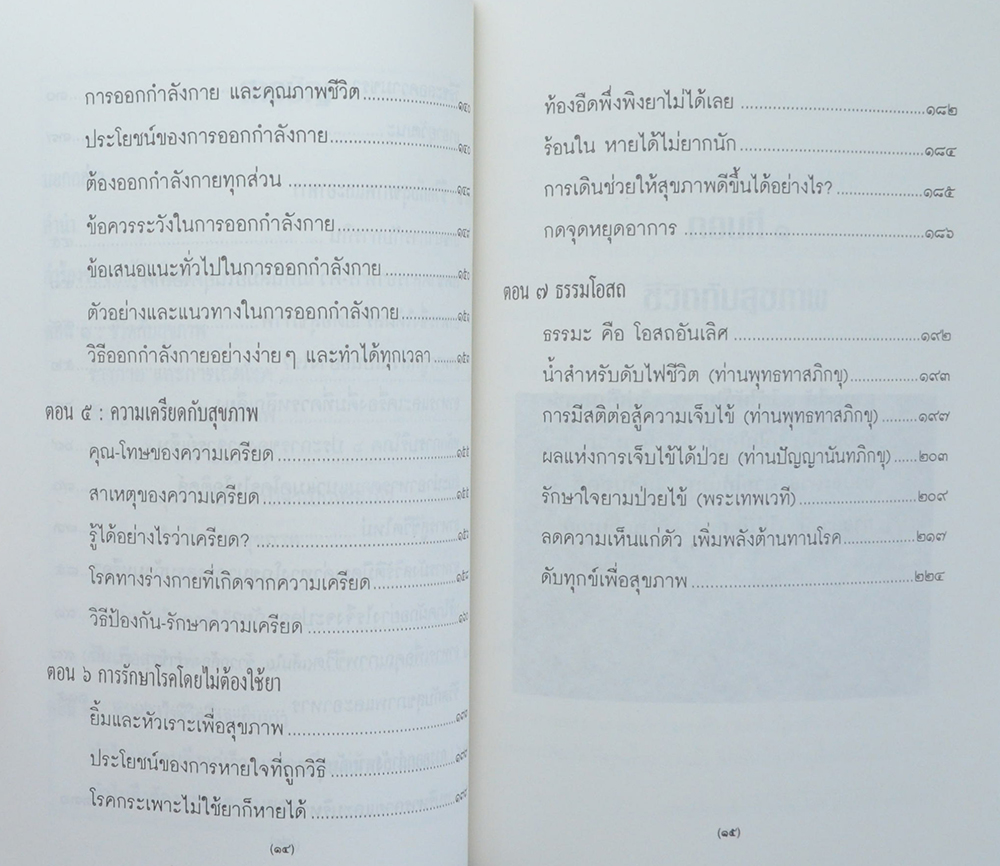 การออกกำลังกาย และคุณภาพชีวิต
ประโยชน์ของการออกกำลังกาย
ต้องออกกำลังกายทุกส่วน
ข้อควรระวังในการออกกำลังกาย
ข้อเสนอแนะทั่วไปในการออกกำลังกาย
ตัวอย่างและแนวทางในการออกกำลังกาย
วิธีออกกำลังกายอย่างง่ายๆ และทำได้ทุกเวลา
ตอน ๕ : ความเครียดกับสุขภาพ
คุณ-โทษของความเครียด
สาเหตุของความเครียด
รู้ได้อย่างไรว่าเครียด?
โรคทางร่างกายที่เกิดจากความเครียด
วิธีป้องกัน-รักษาความเครียด
ตอน ๖ การรักษาโรคโดยไม่ต้องใช้ยา
ยิ้มและหัวเราะเพื่อสุขภาพ
ประโยชน์ของการหายใจที่ถูกวิธี
โรคกระเพาะไม่ใช้ยาก็หายได้
(๑๔)
ท้องอืดพึ่งพิงยาไม่ได้เลย ๑๘๒
ร้อนใน หายได้ไม่ยากนัก ๑๘๔
การเดินช่วยให้สุขภาพดีขึ้นได้อย่างไร? ๑๘๕
กดจุดหยุดอาการ ๑๘๖
ตอน ๗ ธรรมโอสถ
ธรรมะ คือ โอสถอันเลิศ ๑๙๒
น้ำสำหรับดับไฟชีวิต (ท่านพุทธทาสภิกขุ) ๑๙๓
การมีสติต่อสู้ความเจ็บไข้ (ท่านพุทธทาสภิกขุ) ๑๙๗
ผลแห่งการเจ็บไข้ได้ป่วย (ท่านปัญญานันทภิกขุ) ๒๐๓
รักษาใจยามป่วยไข้ (พระเทพเวที) ๒๐๙
ลดความเห็นแก่ตัว เพิ่มพลังต้านทานโรค ๒๑๗
ดับทุกข์เพื่อสุขภาพ ๒๒๔
(๑๕)